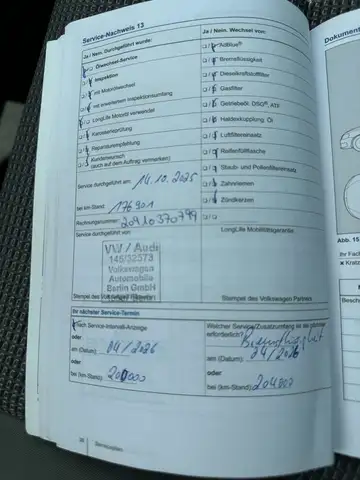 Service-Nachweis 13
Ja / Nein. Durchgeführt wurde:
Ölwechsel-Service
Inspektion
mit Motorölwechsel
mit erweitertem Inspektionsumfang
LongLife Motoröl verwendet
Karosserieprüfung
Reparaturempfehlung
Kundenwunsch
(auch auf dem Auftrag vermerken)
Service durchgeführt am: 14.10.2025
bei km-Stand: 176901
Rechnungsnummer: 20910370799
Service durchgeführt von:
VW / Audi
145/32573
Volkswagen
Automobile
Berlin GmbH
Stempel des
Ja / Nein. Wechsel von:
AdBlue®
Bremsflüssigkeit
Dieselkraftstofffilter
Gasfilter
Getriebeöl, DSG®, ATF
Haldexkupplung Öl
Luftfiltereinsatz
Reifenfüllflasche
Staub- und Pollenfiltereinsatz
Zahnriemen
Zündkerzen
LongLife Mobilitätsgarantie
Stempel des Volkswagen Partners
Ihr nächster Service-Termin
nach Service-Intervall-Anzeige
oder
am (Datum): 04/2026
oder
bei (km-Stand):
Welcher Service/Zusatzumfang ist
erforderlich?
am (Datum):
oder
bei (km-Stand):
Servicepläne
Dokument
Abb. 15
Ihr Fach
Kratz
Besch